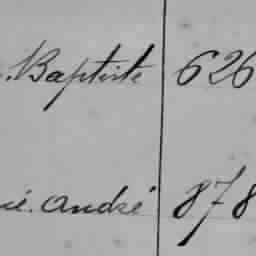 . Baptiste 626
ié. André 878